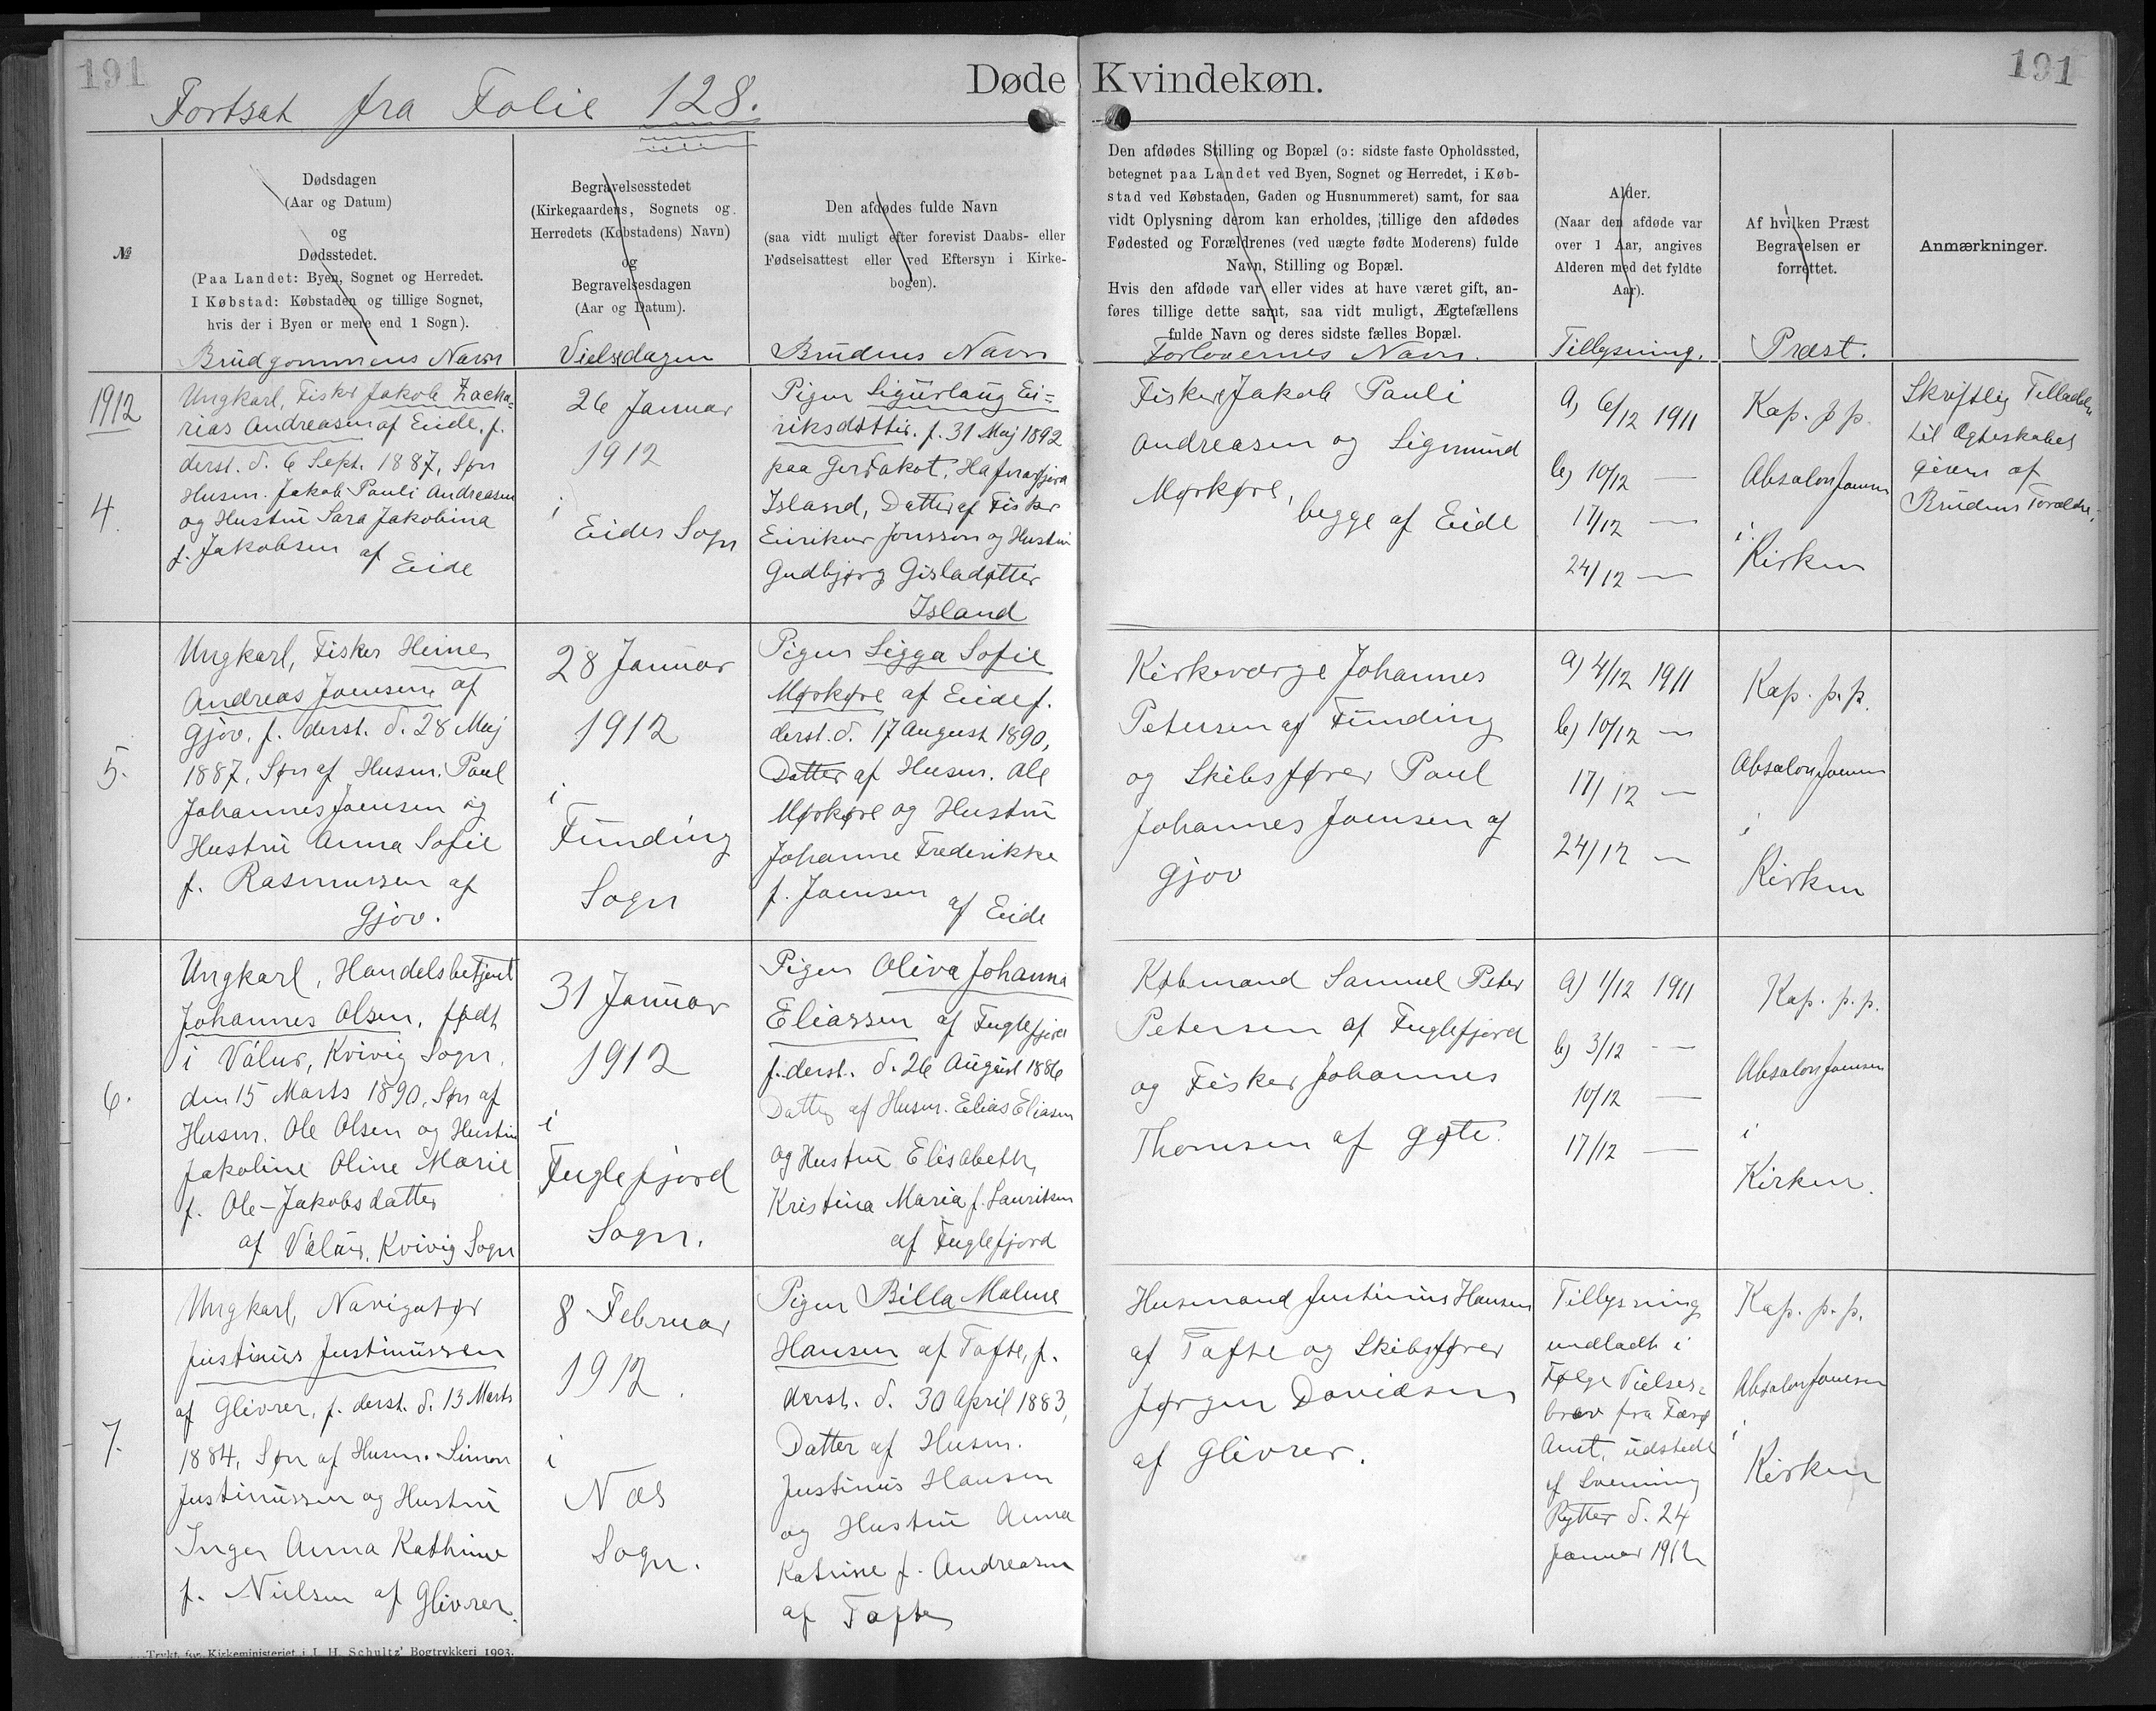 191
191
Døde Kvindekøn.
Fortsat fra Folie 128.
№
Dødsdagen
(Aar og Datum)
og
Dødsstedet.
(Paa Landet: Byen, Sognet og Herredet.
I Købstad: Købstaden og tillige Sognet,
hvis der i Byen er mere end 1 Sogn).
Brudgommens Navn
Begravelsesstedet
(Kirkegaardens, Sognets og
Herredets (Købstadens) Navn)
og
Begravelsesdagen
(Aar og Datum).
Vielsedagen
Den afdødes fulde Navn
(saa vidt muligt efter forevist Daabs- eller
Fødselsattest eller ved Eftersyn i Kirke-
bogen).
Brudens Navn
Den afdødes Stilling og Bopæl (ɔ: sidste faste Opholdssted,
betegnet paa Landet ved Byen, Sognet og Herredet, i Køb-
stad ved Købstaden, Gaden og Husnummeret) samt, for saa
vidt Oplysning derom kan erholdes, tillige den afdødes
Fødested og Forældrenes (ved uægte fødte Moderens) fulde
Navn, Stilling og Bopæl.
Hvis den afdøde var eller vides at have været gift, an-
føres tillige dette samt, saa vidt muligt, Ægtefællens
fulde Navn og deres sidste fælles Bopæl.
Forlovernes Navn.
Alder.
(Naar den afdøde var
over 1 Aar, angives
Alderen med det fyldte
Aar).
Tillysning.
Af hvilken Præst
Begravelsen er
forrettet.
Præst.
Anmærkninger.
1912
4.
Ungkarl, Fisker Jakob Zacha=
rias Andreasen af Eide, f.
derst. d. 6 Sept. 1887, Søn
Husm. Jakob Pauli Andreasen
og Hustru Sara Jakobina
f. Jakobsen af
Eide
26 Januar
1912
i
Eides Sogn
Pigen Sigurlaug Ei=
riksdøtter. f. 31 Maj 1892
paa Gerdakot, Hafnarfjord
Island, Datter af Fisker
Eirikur Jonsson og Hustru
Gudbjørg Gisladøtter
Island
Fisker Jakob Pauli
Andreasen og Sigmund
Mørkøre,
begge af Eide
a) 6/12 1911
b) 10/12 —
17/12 —
24/12 —
Kap. p.p.
Absalon Joensen
i
Kirken
Skriftlig Tilladelse
til Ægteskabet
given af
Brudens Forældre.
5.
Ungkarl, Fisker Heine
Andreas Joensen af
Gjov. f. derst. d. 28 Maj
1887, Søn af Husm. Poul
Johannes Joensen og
Hustru Anna Sofie
f. Rasmussen af
Gjov.
28 Januar
1912
i
Funding
Sogn
Pigen Sigga Sofie
Mørkøre af Eide f.
derst. d. 17 August 1890,
Datter af Husm. Ole
Mørkøre og Hustru
Johanne Frederikke
f. Joensen
af Eide
Kirkeværge Johannes
Petersen af Funding
og Skibsfører Poul
Johannes Joensen af
Gjov
a) 4/12 1911
b) 10/12 —
17/12 —
24/12 —
Kap. p.p.
Absalon Joensen
i
Kirken
6.
Ungkarl, Handelsbetjent
Johannes Olsen, født
i Válur, Kvivig Sogn.
den 15 Marts 1890, Søn af
Husm. Ole Olsen og Hustru
Jakoline Oline Marie
f. Ole-Jakobsdatter
af Válur, Kvivig Sogn
31 Januar
1912
i
Fuglefjord
Sogn.
Pigen Oliva Johanna
Eliassen af Fuglefjord
f. derst. d. 26 August 1886
Datter af Husm. Elias Eliasen
og Hustru Elisabeth
Kristina Maria f. Lauritsen
af Fuglefjord
Købmand Samuel Peter
Petersen af Fuglefjord
og Fisker Johannes
Thomsen af Gøte.
a) 1/12 1911
b) 3/12 —
10/12 —
17/12 —
Kap. p.p.
Absalon Joensen
i
Kirken.
7.
Ungkarl, Navigatør
Justinus Justinussen
af Glivrer, f. derst. d. 13 Marts
1884, Søn af Husm. Simon
Justinussen og Hustru
Inger Anna Kathrine
f. Nielsen af Glivrer.
8 Februar
1912.
i
Næs
Sogn.
Pigen Billa Malene
Hansen af Tofte, f.
derst. d. 30 April 1883,
Datter af Husm.
Justinus Hansen
og Hustru Anna
Katrine f. Andreasen
af Tofte
Husmand Justinus Hansen
af Tofte og Skibsfører
Jørgen Davidsen
af Glivrer.
Tillysning
undladt i
Følge Vielses=
brev fra Færø
Amt, udstedt
af Svenning
Rytter d. 24
Januar 1912
Kap. p.p.
Absalon Joensen
i
Kirken
Trykt for Kirkeministeriet i J. H. Schultz' Bogtrykkeri 1903.